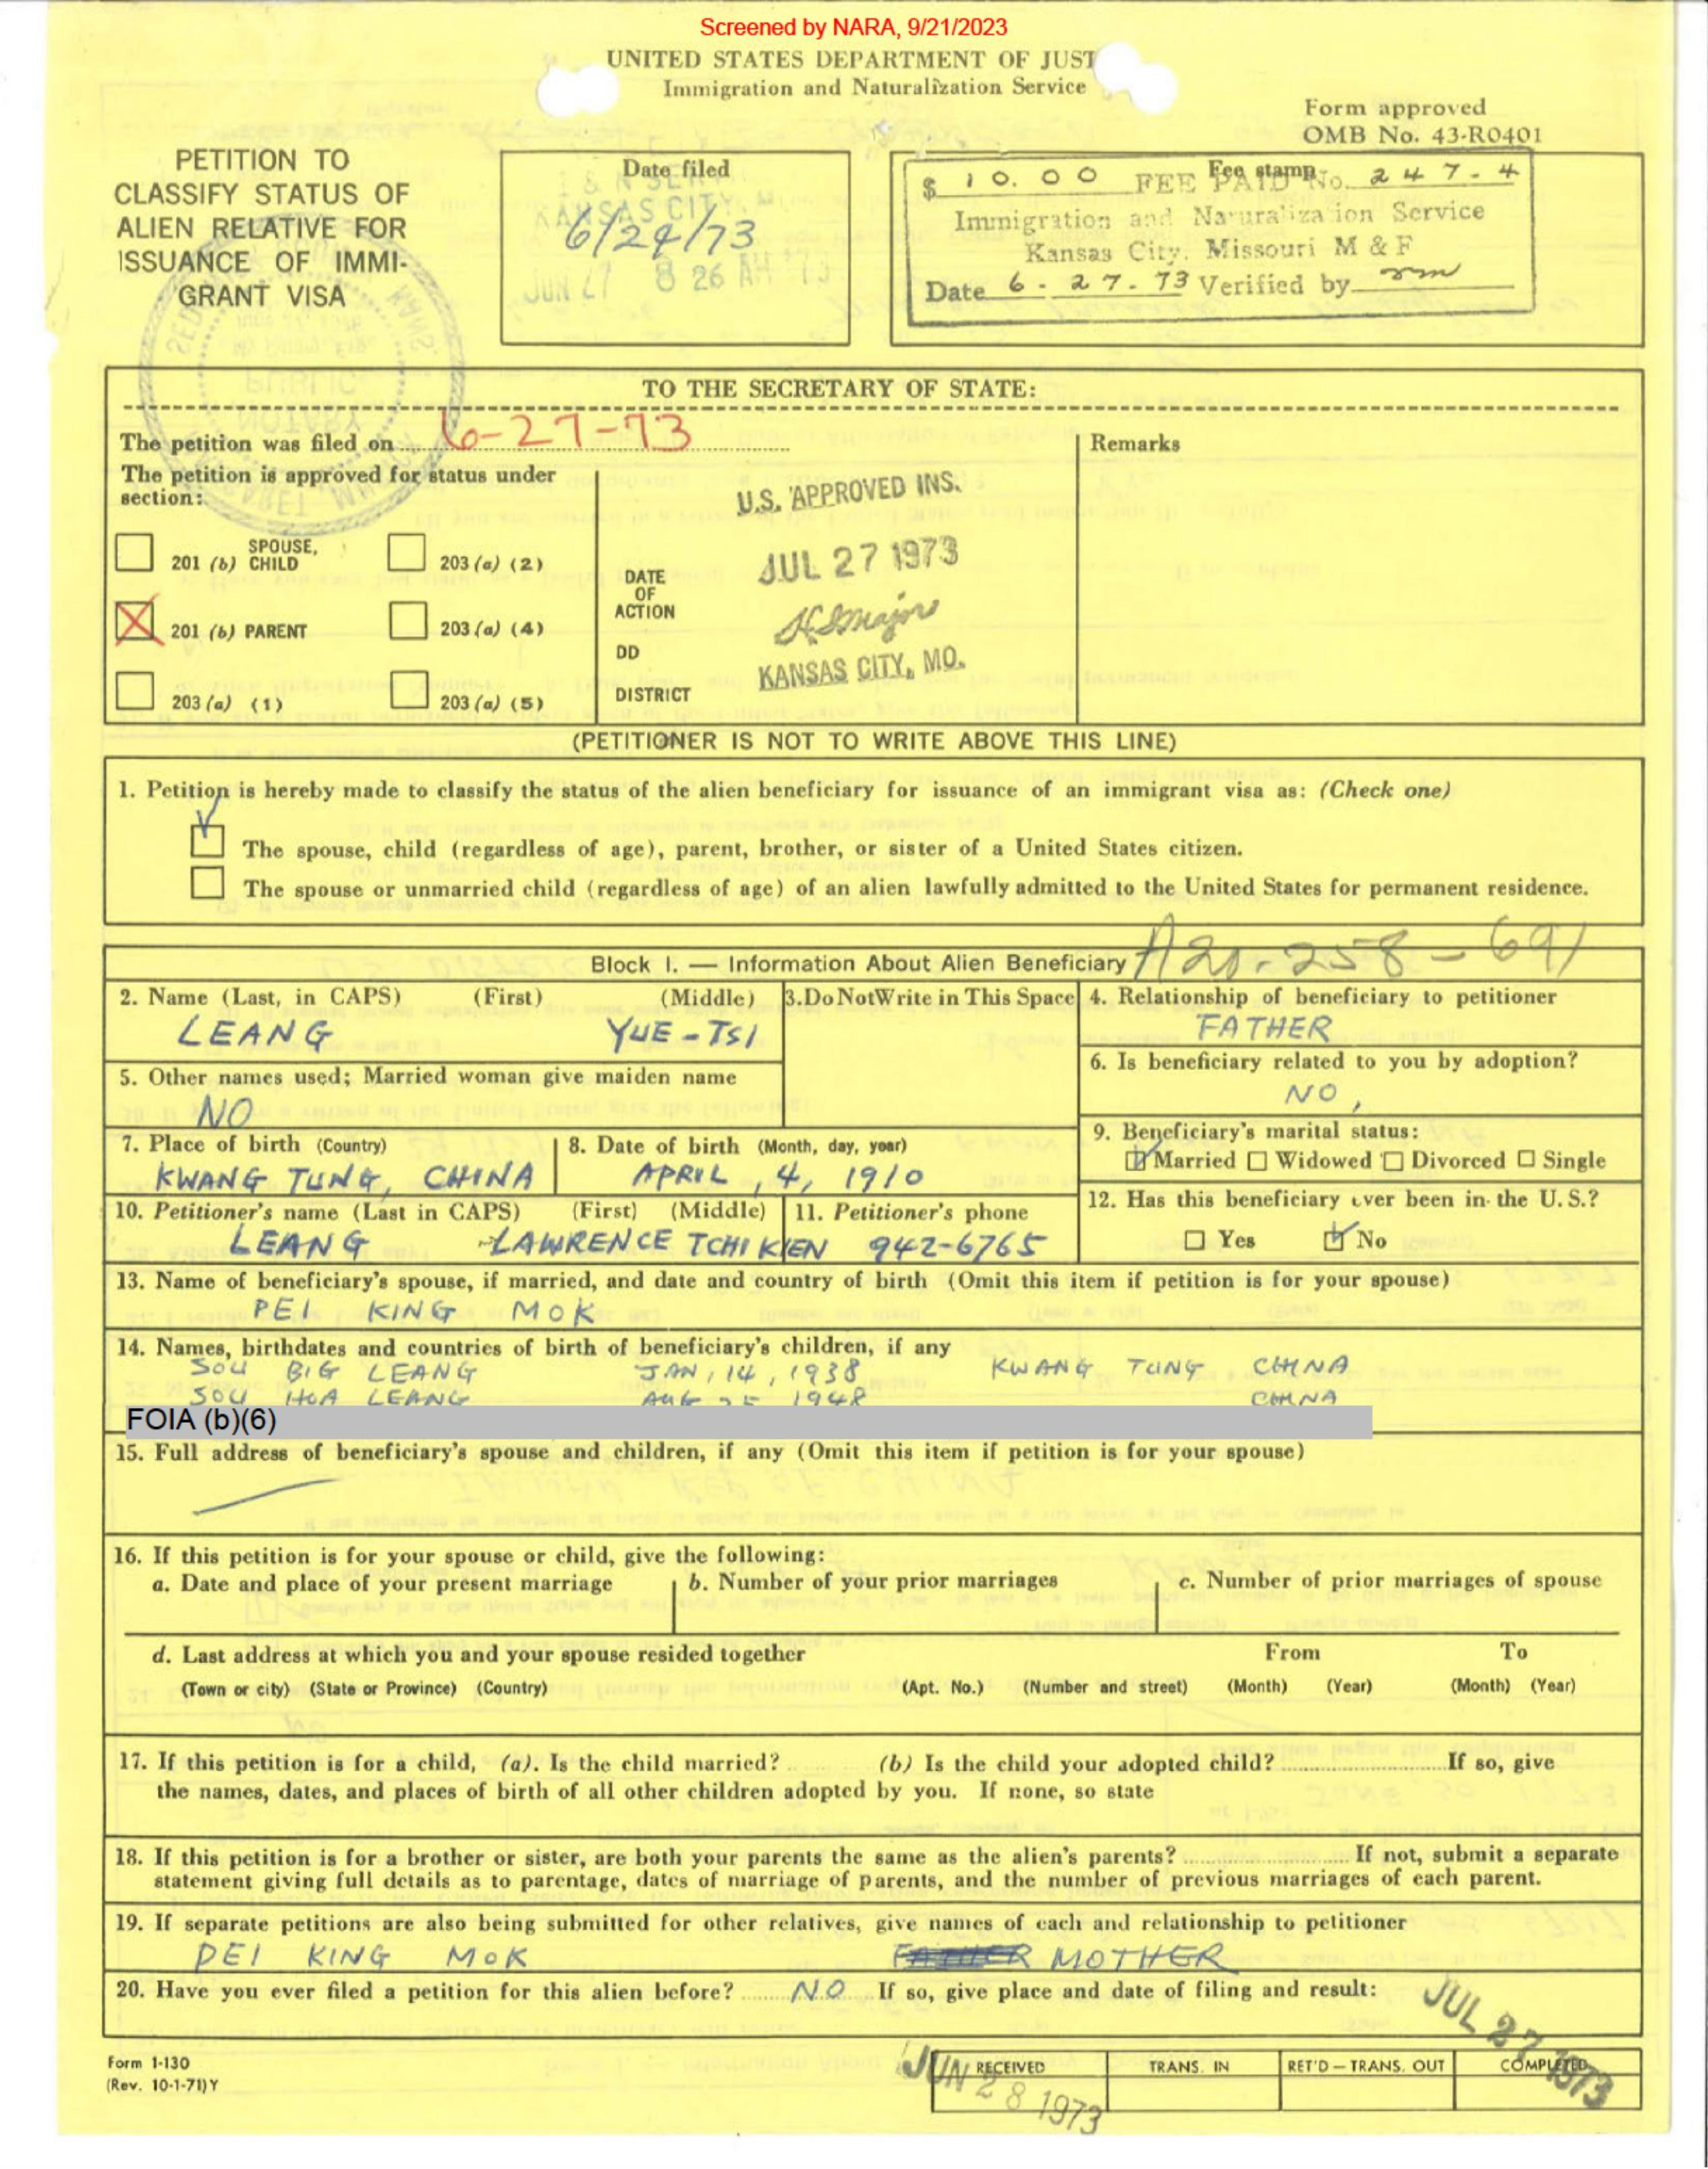 Screened by NARA, 9/21/2023
UNITED STATES DEPARTMENT OF JUST
Immigration and Naturalization Service
Form approved
OMB No. 43-R0401
PETITION TO
CLASSIFY STATUS OF
ALIEN RELATIVE FOR
ISSUANCE OF IMMI-
GRANT VISA
Date filed
KANSAS CITY, M
6/24/73
JUN 27 8 26 AM '73
Fee stamp
$ 10.00 FEE PAID No. 247-4
Immigration and Naturalization Service
Kansas City, Missouri M & F
Date 6-27-73 Verified by
TO THE SECRETARY OF STATE:
The petition was filed on 6-27-73
Remarks
The petition is approved for status under
section:
201 (b) SPOUSE, CHILD
203 (a) (2)
201 (b) PARENT
203 (a) (4)
203 (a) (1)
203 (a) (5)
DATE
OF
ACTION
DD
DISTRICT
U.S. APPROVED INS.
JUL 27 1973
KANSAS CITY, MO.
(PETITIONER IS NOT TO WRITE ABOVE THIS LINE)
1. Petition is hereby made to classify the status of the alien beneficiary for issuance of an immigrant visa as: (Check one)
The spouse, child (regardless of age), parent, brother, or sister of a United States citizen.
The spouse or unmarried child (regardless of age) of an alien lawfully admitted to the United States for permanent residence.
Block I. — Information About Alien Beneficiary A20-258-691
2. Name (Last, in CAPS) (First) (Middle)
LEANG YUE-TSI
3. Do Not Write in This Space
4. Relationship of beneficiary to petitioner
FATHER
5. Other names used; Married woman give maiden name
NO
6. Is beneficiary related to you by adoption?
NO,
7. Place of birth (Country)
KWANG TUNG, CHINA
8. Date of birth (Month, day, year)
APRIL, 4, 1910
9. Beneficiary's marital status:
Married Widowed Divorced Single
10. Petitioner's name (Last in CAPS) (First) (Middle)
LEANG LAWRENCE TCHIKIEN
11. Petitioner's phone
942-6765
12. Has this beneficiary ever been in the U.S.?
Yes No
13. Name of beneficiary's spouse, if married, and date and country of birth (Omit this item if petition is for your spouse)
PEI KING MOK
14. Names, birthdates and countries of birth of beneficiary's children, if any
SOU BIG LEANG JAN, 14, 1938 KWANG TUNG CHINA
SOU HOA LEANG AUG 25 1948 CHINA
FOIA (b)(6)
15. Full address of beneficiary's spouse and children, if any (Omit this item if petition is for your spouse)
16. If this petition is for your spouse or child, give the following:
a. Date and place of your present marriage
b. Number of your prior marriages
c. Number of prior marriages of spouse
d. Last address at which you and your spouse resided together From To
(Town or city) (State or Province) (Country) (Apt. No.) (Number and street) (Month) (Year) (Month) (Year)
17. If this petition is for a child, (a). Is the child married? (b) Is the child your adopted child? If so, give
the names, dates, and places of birth of all other children adopted by you. If none, so state
18. If this petition is for a brother or sister, are both your parents the same as the alien's parents? If not, submit a separate
statement giving full details as to parentage, dates of marriage of parents, and the number of previous marriages of each parent.
19. If separate petitions are also being submitted for other relatives, give names of each and relationship to petitioner
PEI KING MOK FATHER MOTHER
20. Have you ever filed a petition for this alien before? NO If so, give place and date of filing and result:
JUL 27 1973
Form I-130
(Rev. 10-1-71) Y
RECEIVED TRANS. IN RET'D — TRANS. OUT COMPLETED
JUN 28 1973